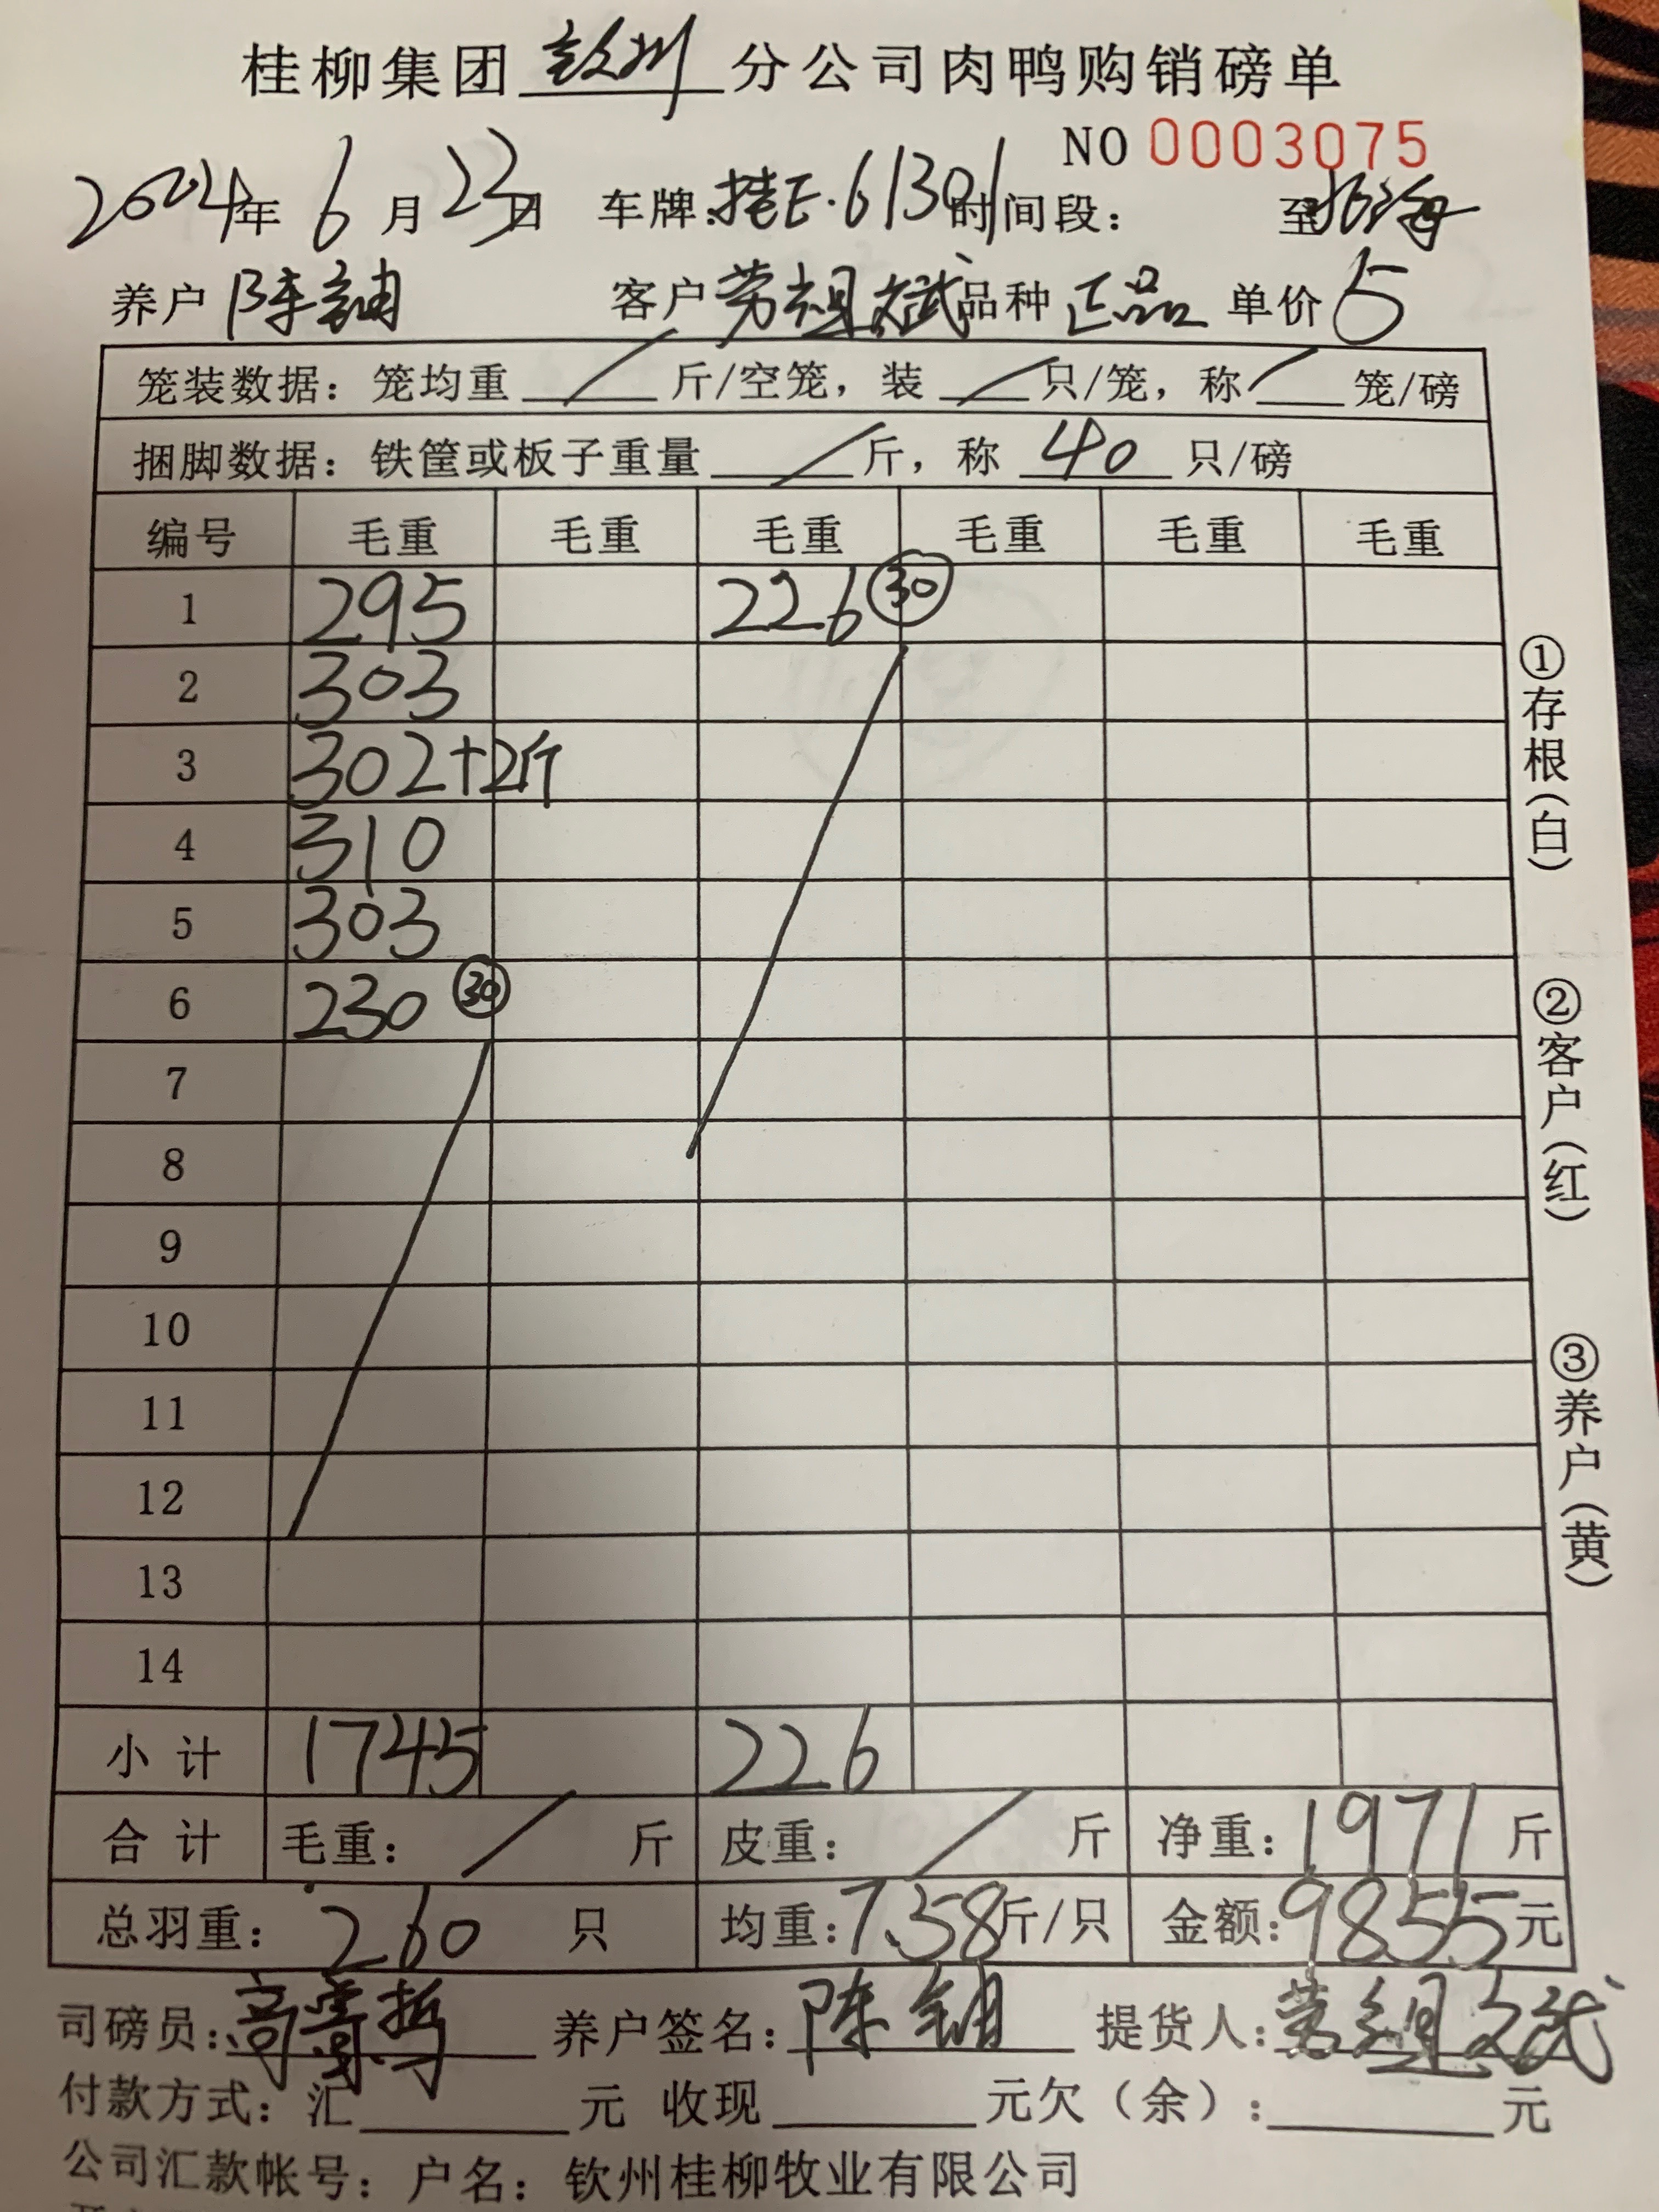 桂柳集团钦州分公司肉鸭购销磅单
NO 0003075
2024年 6月 23日 车牌:桂E·61301 时间段: 至 北海
养户 陈 客户 劳祖斌 品种 正品 单价 5
笼装数据: 笼均重 / 斤/空笼, 装 / 只/笼, 称 / 笼/磅
捆脚数据: 铁筐或板子重量 / 斤, 称 40 只/磅
编号 毛重 毛重 毛重 毛重 毛重 毛重
1 295 226 ㉚
2 303
3 302+2斤
4 310
5 303
6 230 ㉚
7
8
9
10
11
12
13
14
小计 1745 226
合计 毛重: / 斤 皮重: / 斤 净重: 1971 斤
总羽重: 260 只 均重: 7.58 斤/只 金额: 9855 元
司磅员: 高 养户签名: 陈 提货人: 劳祖斌
付款方式: 汇 元 收现 元欠(余): 元
公司汇款帐号: 户名: 钦州桂柳牧业有限公司
①存根(白)
②客户(红)
③养户(黄)